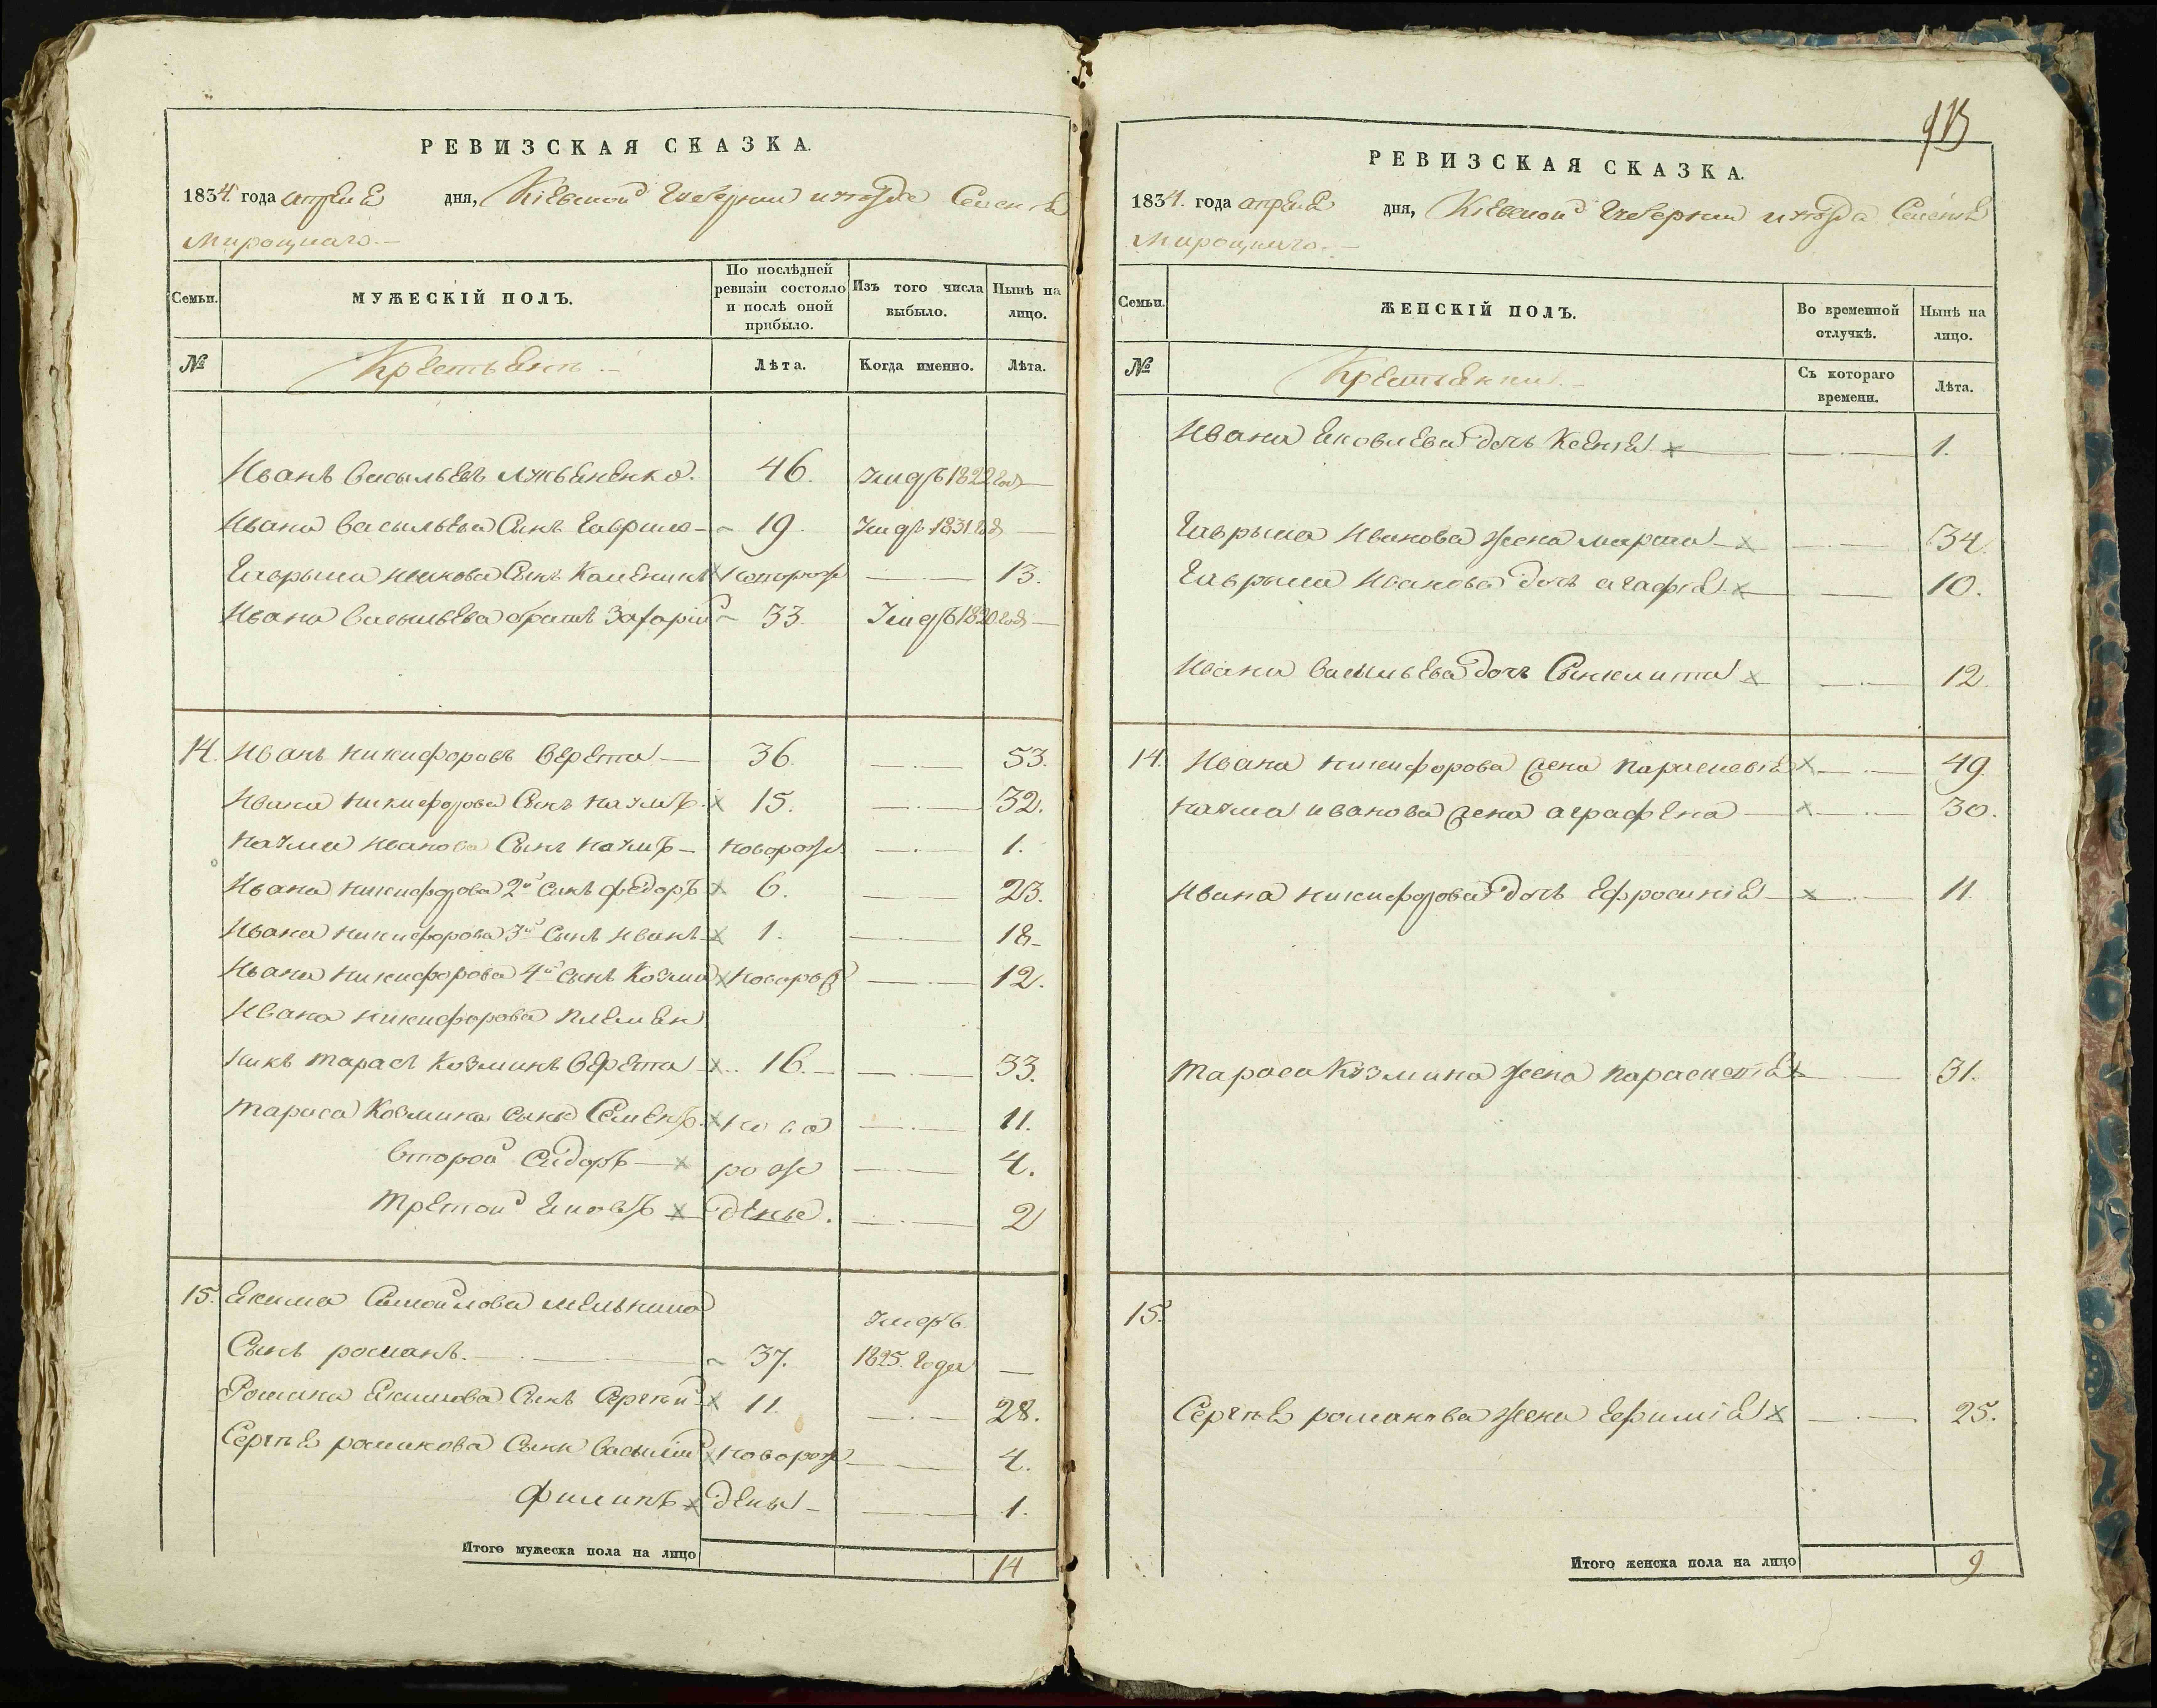 РЕВИЗСКАЯ СКАЗКА.
1834. года апреля дня, Кіевской Губернии и уезда Селенія
Мироцкаго.
Семьи.
МУЖЕСКІЙ ПОЛЪ.
По послѣдней ревизіи состояло и послѣ оной прибыло.
Изъ того числа выбыло.
Нынѣ на лицо.
№
Крестьяне
Лѣта.
Когда именно.
Лѣта.
Иванъ Васильевъ 46. 1822
Ивана Васильева Сынъ Гаврило 19. 1831
Гаврила Иванова Сынъ 13.
Ивана Васильева братъ Захарій 33. 1820
14. Иванъ Никифоровъ Верета 36. 53.
Ивана Никифорова Сынъ Наумъ 15. 32.
Наума Иванова Сынъ Наумъ новорож 1.
Ивана Никифорова 2й Сынъ Федоръ 6. 23.
Ивана Никифорова 3й Сынъ Иванъ 1. 18
Ивана Никифорова 4й Сынъ Козма новорож 12.
Ивана Никифорова племен
никъ Тарасъ Козминъ Верета 16. 33.
Тараса Козмина Сынъ Семенъ ново 11.
Второй Сидоръ рож 4.
Третой Яковъ дены. 2
15. Екима Самойлова Мельника
Сынъ Романъ. 37. умеръ 1825. года
Романа Екимова Сынъ Сергѣй 11. 28.
Сергѣя Романова Сынъ Василій новорож 4.
Филипъ дены 1.
Итого мужеска пола на лицо 14
913
РЕВИЗСКАЯ СКАЗКА.
1834. года апреля дня, Кіевской Губернии и уезда Селенія
Мироцкаго.
Семьи.
ЖЕНСКІЙ ПОЛЪ.
Во временной отлучкѣ.
Нынѣ на лицо.
№
Крестьянки.
Съ котораго времени.
Лѣта.
Ивана Яковлева дочь Ксенія 1.
Гаврыла Иванова жена Марта 34.
Гаврыла Иванова дочь агафія 10.
Ивана Васильева дочь Синклита 12.
14. Ивана Никифорова жена Параскевія 49.
Наума Иванова жена аграфена 30.
Ивана Никифорова дочь Ефросинія 11.
Тараса Козмина жена Параскевія 31.
15.
Сергѣя Романова жена Ефимія 25.
Итого женска пола на лицо 9